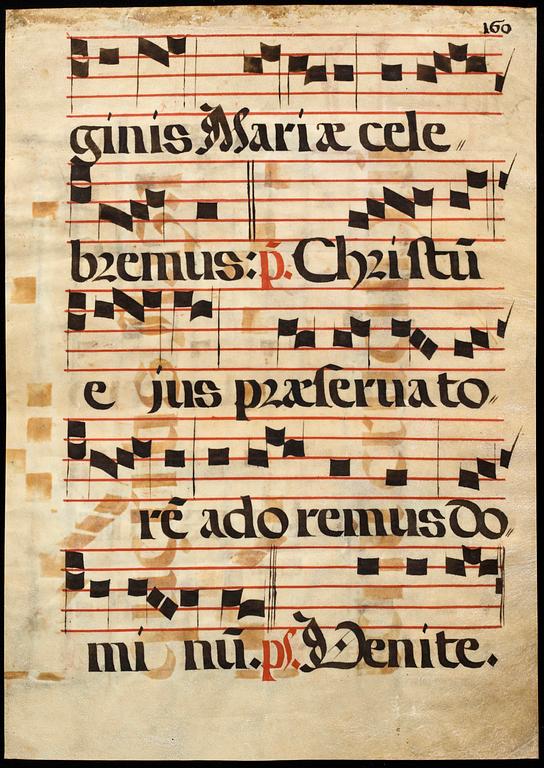 160
ginis Mariæ cele〃
bremus: p̄. Christū
e jus præseruato〃
rē ado remus Do〃
mi nū. ps. Venite.